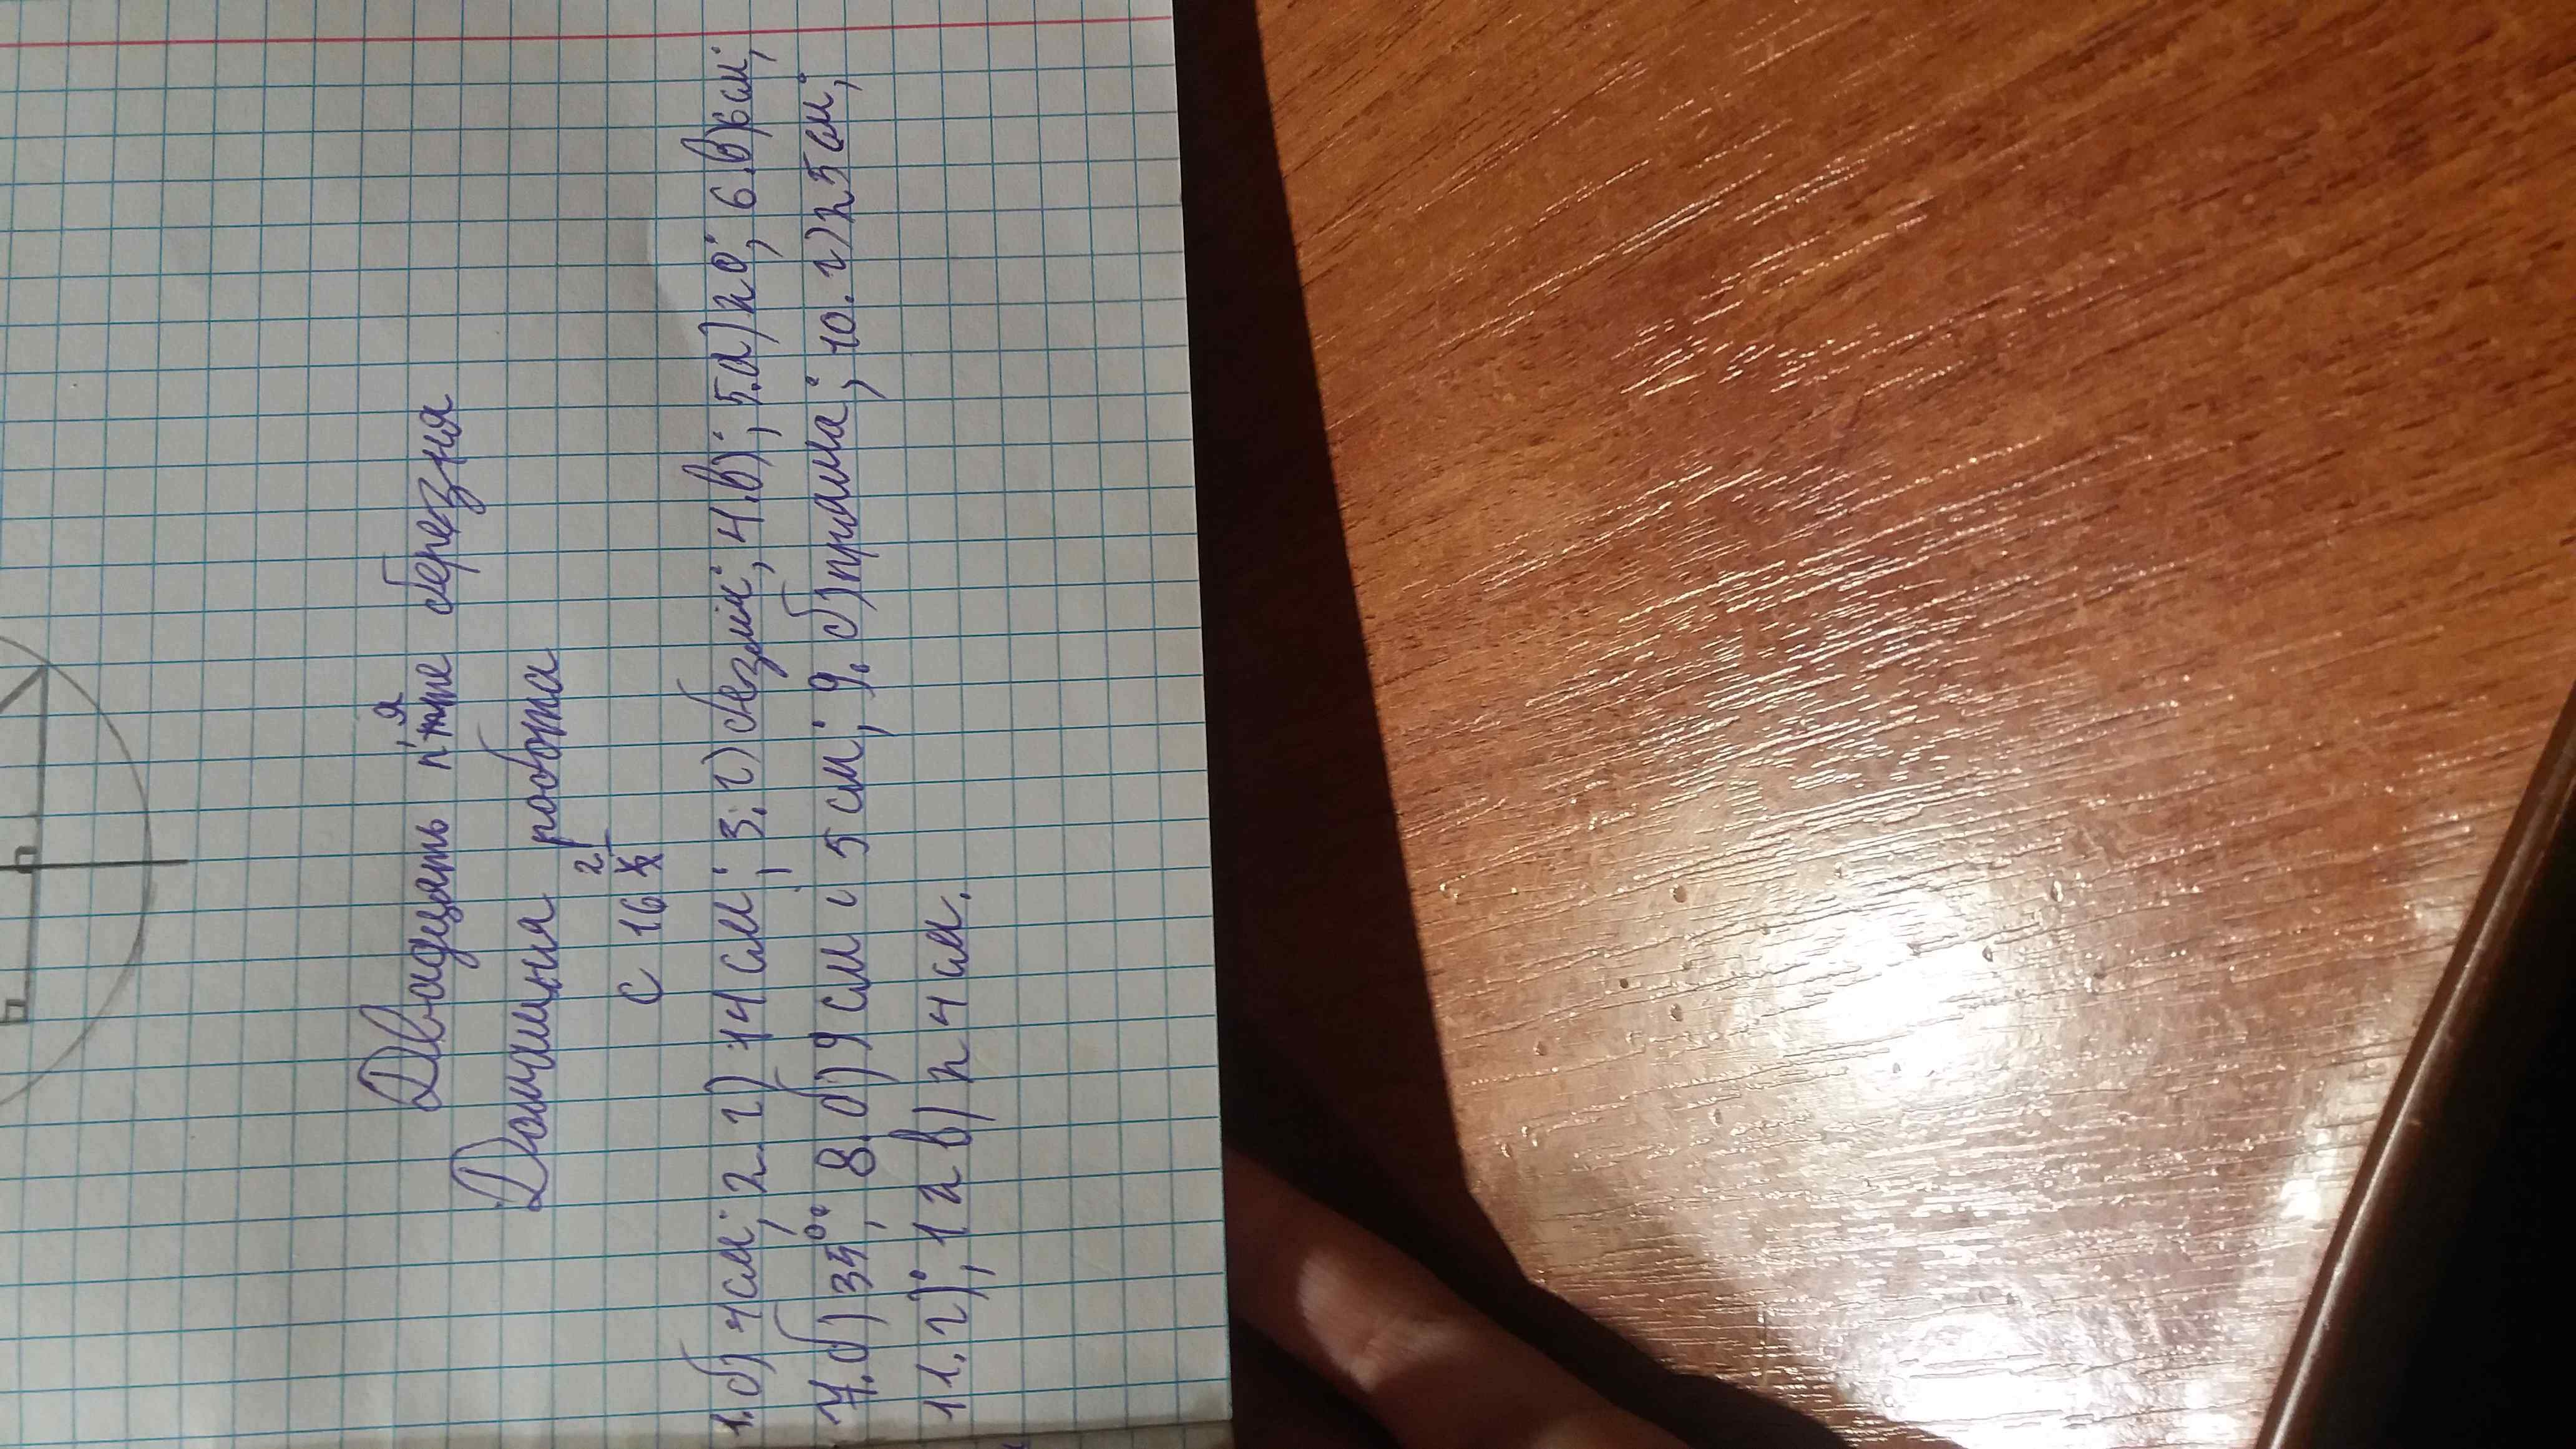 Двадцять п'яте березня
Домашня робота
С 162
1. б) 4 см; 2. г) 14 см; 3. г) безліч; 4. в); 5. а) 20; 6. в) 6 см;
7. б) 35°; 8. б) 9 см і 5 см; 9. б) пряма; 10. г) 25 см;
11. г); 12 в) 24 см.